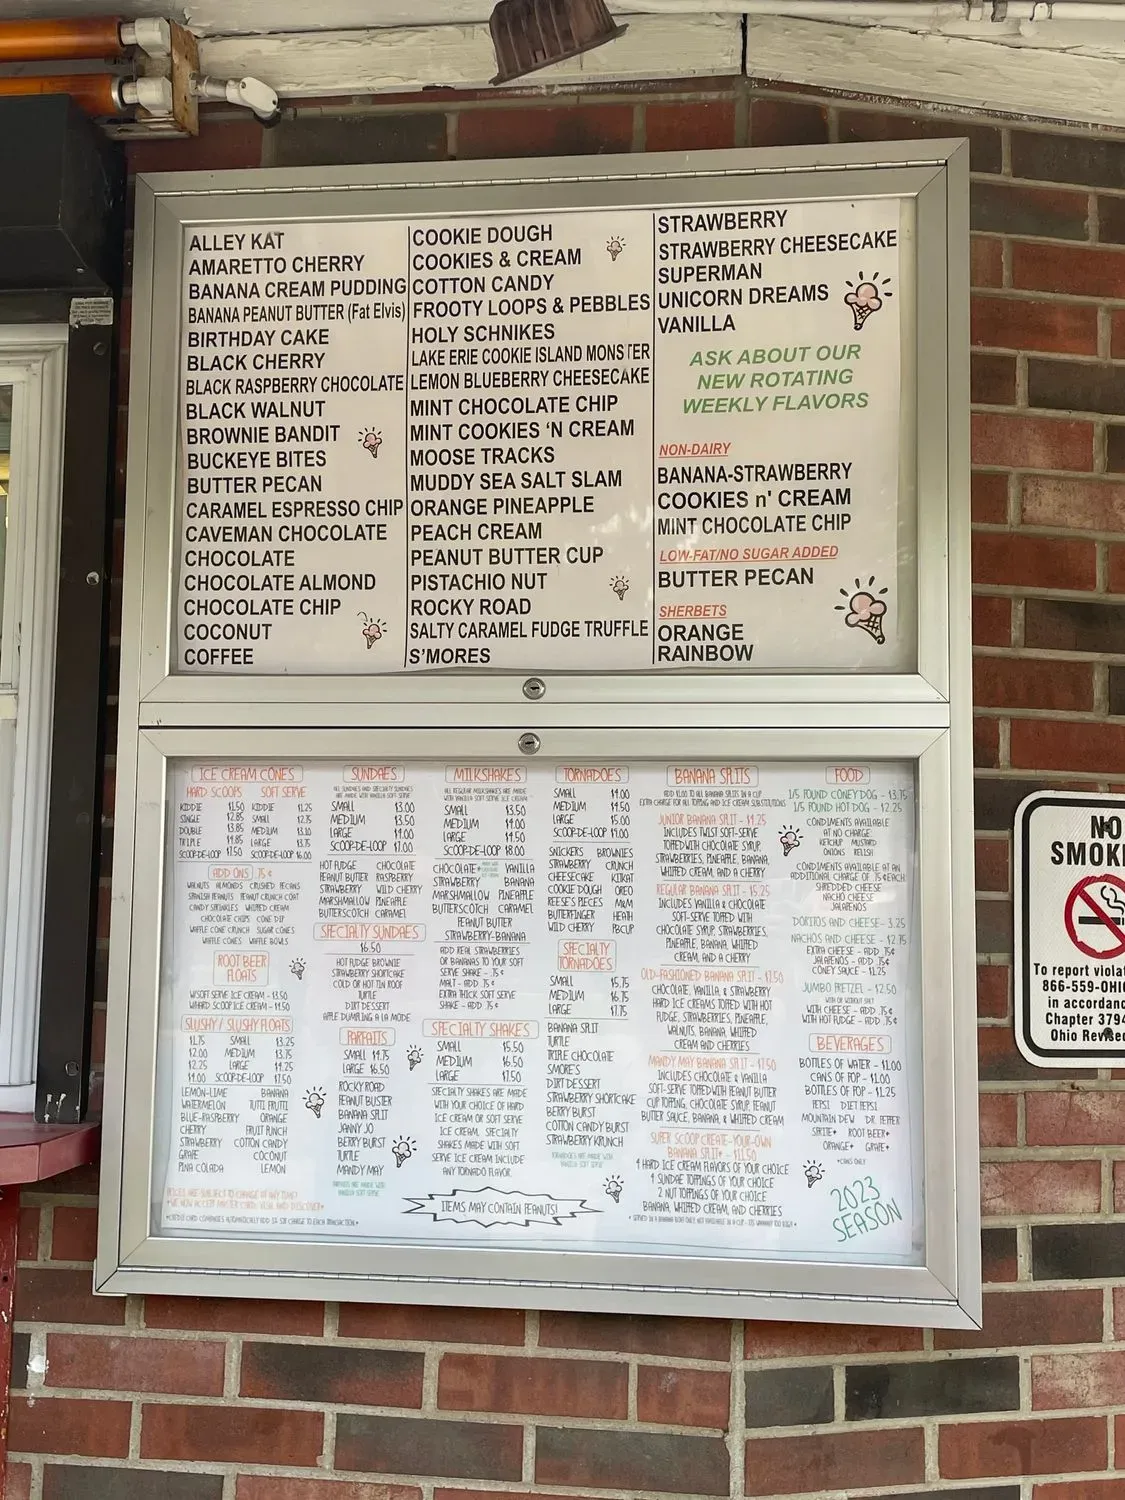 ALLEY KAT
AMARETTO CHERRY
BANANA CREAM PUDDING
BANANA PEANUT BUTTER (Fat Elvis)
BIRTHDAY CAKE
BLACK CHERRY
BLACK RASPBERRY CHOCOLATE
BLACK WALNUT
BROWNIE BANDIT
BUCKEYE BITES
BUTTER PECAN
CARAMEL ESPRESSO CHIP
CAVEMAN CHOCOLATE
CHOCOLATE
CHOCOLATE ALMOND
CHOCOLATE CHIP
COCONUT
COFFEE
COOKIE DOUGH
COOKIES & CREAM
COTTON CANDY
FROOTY LOOPS & PEBBLES
HOLY SCHNIKES
LAKE ERIE COOKIE ISLAND MONSTER
LEMON BLUEBERRY CHEESECAKE
MINT CHOCOLATE CHIP
MINT COOKIES 'N CREAM
MOOSE TRACKS
MUDDY SEA SALT SLAM
ORANGE PINEAPPLE
PEACH CREAM
PEANUT BUTTER CUP
PISTACHIO NUT
ROCKY ROAD
SALTY CARAMEL FUDGE TRUFFLE
S'MORES
STRAWBERRY
STRAWBERRY CHEESECAKE
SUPERMAN
UNICORN DREAMS
VANILLA
ASK ABOUT OUR
NEW ROTATING
WEEKLY FLAVORS
NON-DAIRY
BANANA-STRAWBERRY
COOKIES n' CREAM
MINT CHOCOLATE CHIP
LOW-FAT/NO SUGAR ADDED
BUTTER PECAN
SHERBETS
ORANGE
RAINBOW
ICE CREAM CONES
HARD SCOOPS SOFT SERVE
KIDDIE $1.50 KIDDIE $1.25
SINGLE $2.85 SMALL $2.75
DOUBLE $3.85 MEDIUM $3.10
TRIPLE $4.85 LARGE $3.75
SCOOP-DE-LOOP $7.50 SCOOP-DE-LOOP $6.00
ADD ONS .75¢
WALNUTS ALMONDS CRUSHED PECANS
SPANISH PEANUTS PEANUT CRUNCH COAT
CANDY SPRINKLES WHIPPED CREAM
CHOCOLATE CHIPS CONE DIP
WAFFLE CONE CRUNCH SUGAR CONES
WAFFLE CONES WAFFLE BOWLS
ROOT BEER
FLOATS
W/SOFT SERVE ICE CREAM - $3.50
W/HARD SCOOP ICE CREAM - $4.50
SLUSHY / SLUSHY FLOATS
$1.75 SMALL $3.25
$2.00 MEDIUM $3.75
$2.25 LARGE $4.25
$4.00 SCOOP-DE-LOOP $7.50
LEMON-LIME BANANA
WATERMELON TUTTI FRUTTI
BLUE-RASPBERRY ORANGE
CHERRY FRUIT PUNCH
STRAWBERRY COTTON CANDY
GRAPE COCONUT
PINA COLADA LEMON
PRICES ARE SUBJECT TO CHANGE AT ANY TIME!
*WE NOW ACCEPT MASTER CARD, VISA, AND DISCOVER*
SUNDAES
ALL SUNDAES AND SPECIALTY SUNDAES
ARE MADE WITH VANILLA SOFT SERVE
SMALL $3.00
MEDIUM $3.50
LARGE $4.00
SCOOP-DE-LOOP $7.00
HOT FUDGE CHOCOLATE
PEANUT BUTTER RASPBERRY
STRAWBERRY WILD CHERRY
MARSHMALLOW PINEAPPLE
BUTTERSCOTCH CARAMEL
SPECIALTY SUNDAES
$6.50
HOT FUDGE BROWNIE
STRAWBERRY SHORTCAKE
COLD OR HOT TIN ROOF
TURTLE
DIRT DESSERT
APPLE DUMPLING A LA MODE
PARFAITS
SMALL $4.75
LARGE $6.50
ROCKY ROAD
PEANUT BUSTER
BANANA SPLIT
JANNY JO
BERRY BURST
TURTLE
MANDY MAY
PARFAITS ARE MADE WITH
VANILLA SOFT SERVE
MILKSHAKES
ALL REGULAR MILKSHAKES ARE MADE
WITH VANILLA SOFT SERVE ICE CREAM
SMALL $3.50
MEDIUM $4.00
LARGE $4.50
SCOOP-DE-LOOP $8.00
CHOCOLATE* VANILLA
STRAWBERRY BANANA
MARSHMALLOW PINEAPPLE
BUTTERSCOTCH CARAMEL
PEANUT BUTTER
STRAWBERRY-BANANA
ADD REAL STRAWBERRIES
OR BANANAS TO YOUR SOFT
SERVE SHAKE - .75 ¢
MALT - ADD .75 ¢
EXTRA THICK SOFT SERVE
SHAKE - ADD .75 ¢
SPECIALTY SHAKES
SMALL $5.50
MEDIUM $6.50
LARGE $7.50
SPECIALTY SHAKES ARE MADE
WITH YOUR CHOICE OF HARD
ICE CREAM OR SOFT SERVE
ICE CREAM. SPECIALTY
SHAKES MADE WITH SOFT
SERVE ICE CREAM INCLUDE
ANY TORNADO FLAVOR.
ITEMS MAY CONTAIN PEANUTS!
TORNADOES
SMALL $4.00
MEDIUM $4.50
LARGE $5.00
SCOOP-DE-LOOP $9.00
SNICKERS BROWNIES
STRAWBERRY CRUNCH
CHEESECAKE KITKAT
COOKIE DOUGH OREO
REESE'S PIECES M&M
BUTTERFINGER HEATH
WILD CHERRY PBCUP
SPECIALTY
TORNADOES
SMALL $5.75
MEDIUM $6.75
LARGE $7.75
BANANA SPLIT
TURTLE
TRIPLE CHOCOLATE
SMORE'S
DIRT DESSERT
STRAWBERRY SHORTCAKE
BERRY BURST
COTTON CANDY BURST
STRAWBERRY KRUNCH
TORNADOES ARE MADE WITH
VANILLA SOFT SERVE
BANANA SPLITS
ADD $1.00 TO ALL BANANA SPLITS IN A CUP
EXTRA CHARGE FOR ALL TOPPING AND ICE CREAM SUBSTITUTIONS
JUNIOR BANANA SPLIT - $4.25
INCLUDES TWIST SOFT-SERVE
TOPPED WITH CHOCOLATE SYRUP,
STRAWBERRIES, PINEAPPLE, BANANA,
WHIPPED CREAM, AND A CHERRY
REGULAR BANANA SPLIT - $5.25
INCLUDES VANILLA & CHOCOLATE
SOFT-SERVE TOPPED WITH
CHOCOLATE SYRUP, STRAWBERRIES,
PINEAPPLE, BANANA, WHIPPED
CREAM, AND A CHERRY
OLD-FASHIONED BANANA SPLIT - $7.50
CHOCOLATE, VANILLA, & STRAWBERRY
HARD ICE CREAMS TOPPED WITH HOT
FUDGE, STRAWBERRIES, PINEAPPLE,
WALNUTS, BANANA, WHIPPED
CREAM AND CHERRIES
MANDY MAY BANANA SPLIT - $7.50
INCLUDES CHOCOLATE & VANILLA
SOFT-SERVE TOPPED WITH PEANUT BUTTER
CUP TOPPING, CHOCOLATE SYRUP, PEANUT
BUTTER SAUCE, BANANA, & WHIPPED CREAM
SUPER SCOOP CREATE-YOUR-OWN
BANANA SPLIT* - $11.50
4 HARD ICE CREAM FLAVORS OF YOUR CHOICE
4 SUNDAE TOPPINGS OF YOUR CHOICE
2 NUT TOPPINGS OF YOUR CHOICE
BANANA, WHIPPED CREAM, AND CHERRIES
FOOD
1/5 POUND CONEY DOG - $3.75
1/5 POUND HOT DOG - $2.25
CONDIMENTS AVAILABLE
AT NO CHARGE:
KETCHUP MUSTARD
ONIONS RELISH
CONDIMENTS AVAILABLE AT AN
ADDITIONAL CHARGE OF .75 ¢ EACH
SHREDDED CHEESE
NACHO CHEESE
JALAPENOS
DORITOS AND CHEESE - 3.25
NACHOS AND CHEESE - $2.75
EXTRA CHEESE - ADD .75¢
JALAPENOS - ADD .75¢
CONEY SAUCE - $1.25
JUMBO PRETZEL - $2.50
WITH OR WITHOUT SALT
WITH CHEESE - ADD .75 ¢
WITH HOT FUDGE - ADD .75 ¢
BEVERAGES
BOTTLES OF WATER - $1.00
CANS OF POP - $1.00
BOTTLES OF POP - $1.25
PEPSI DIET PEPSI
MOUNTAIN DEW DR. PEPPER
SPRITE* ROOT BEER*
ORANGE* GRAPE*
*CANS ONLY
2023
SEASON
NO
SMOK
To report violat
866-559-OHIO
in accordanc
Chapter 3794
Ohio Revise